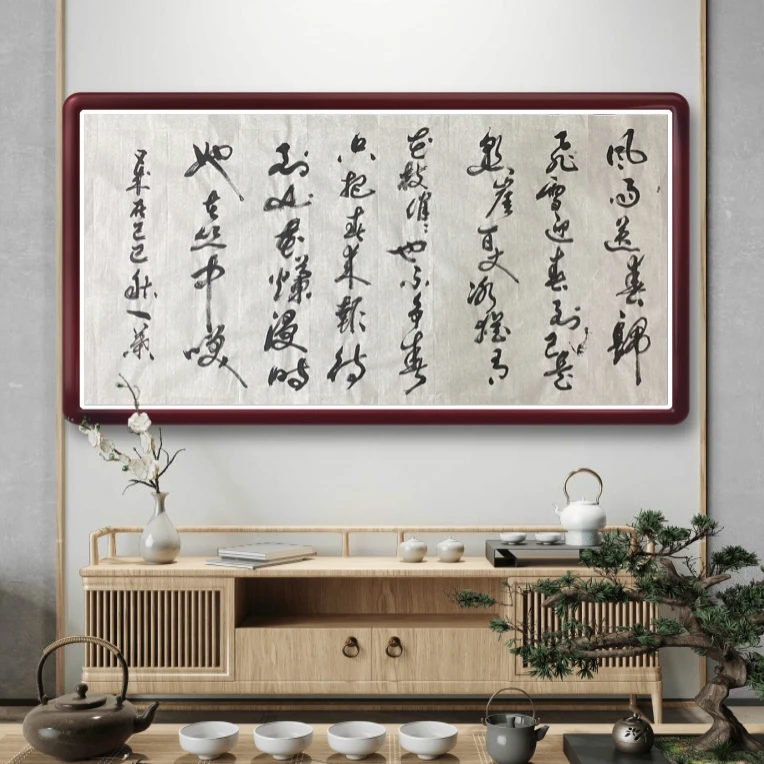 風雨送春歸
飛雪迎春到已是
悬崖百丈冰猶有
花枝俏〻也不争春
只把春来報待
到山花爛漫時
她在丛中笑
在巳秋一